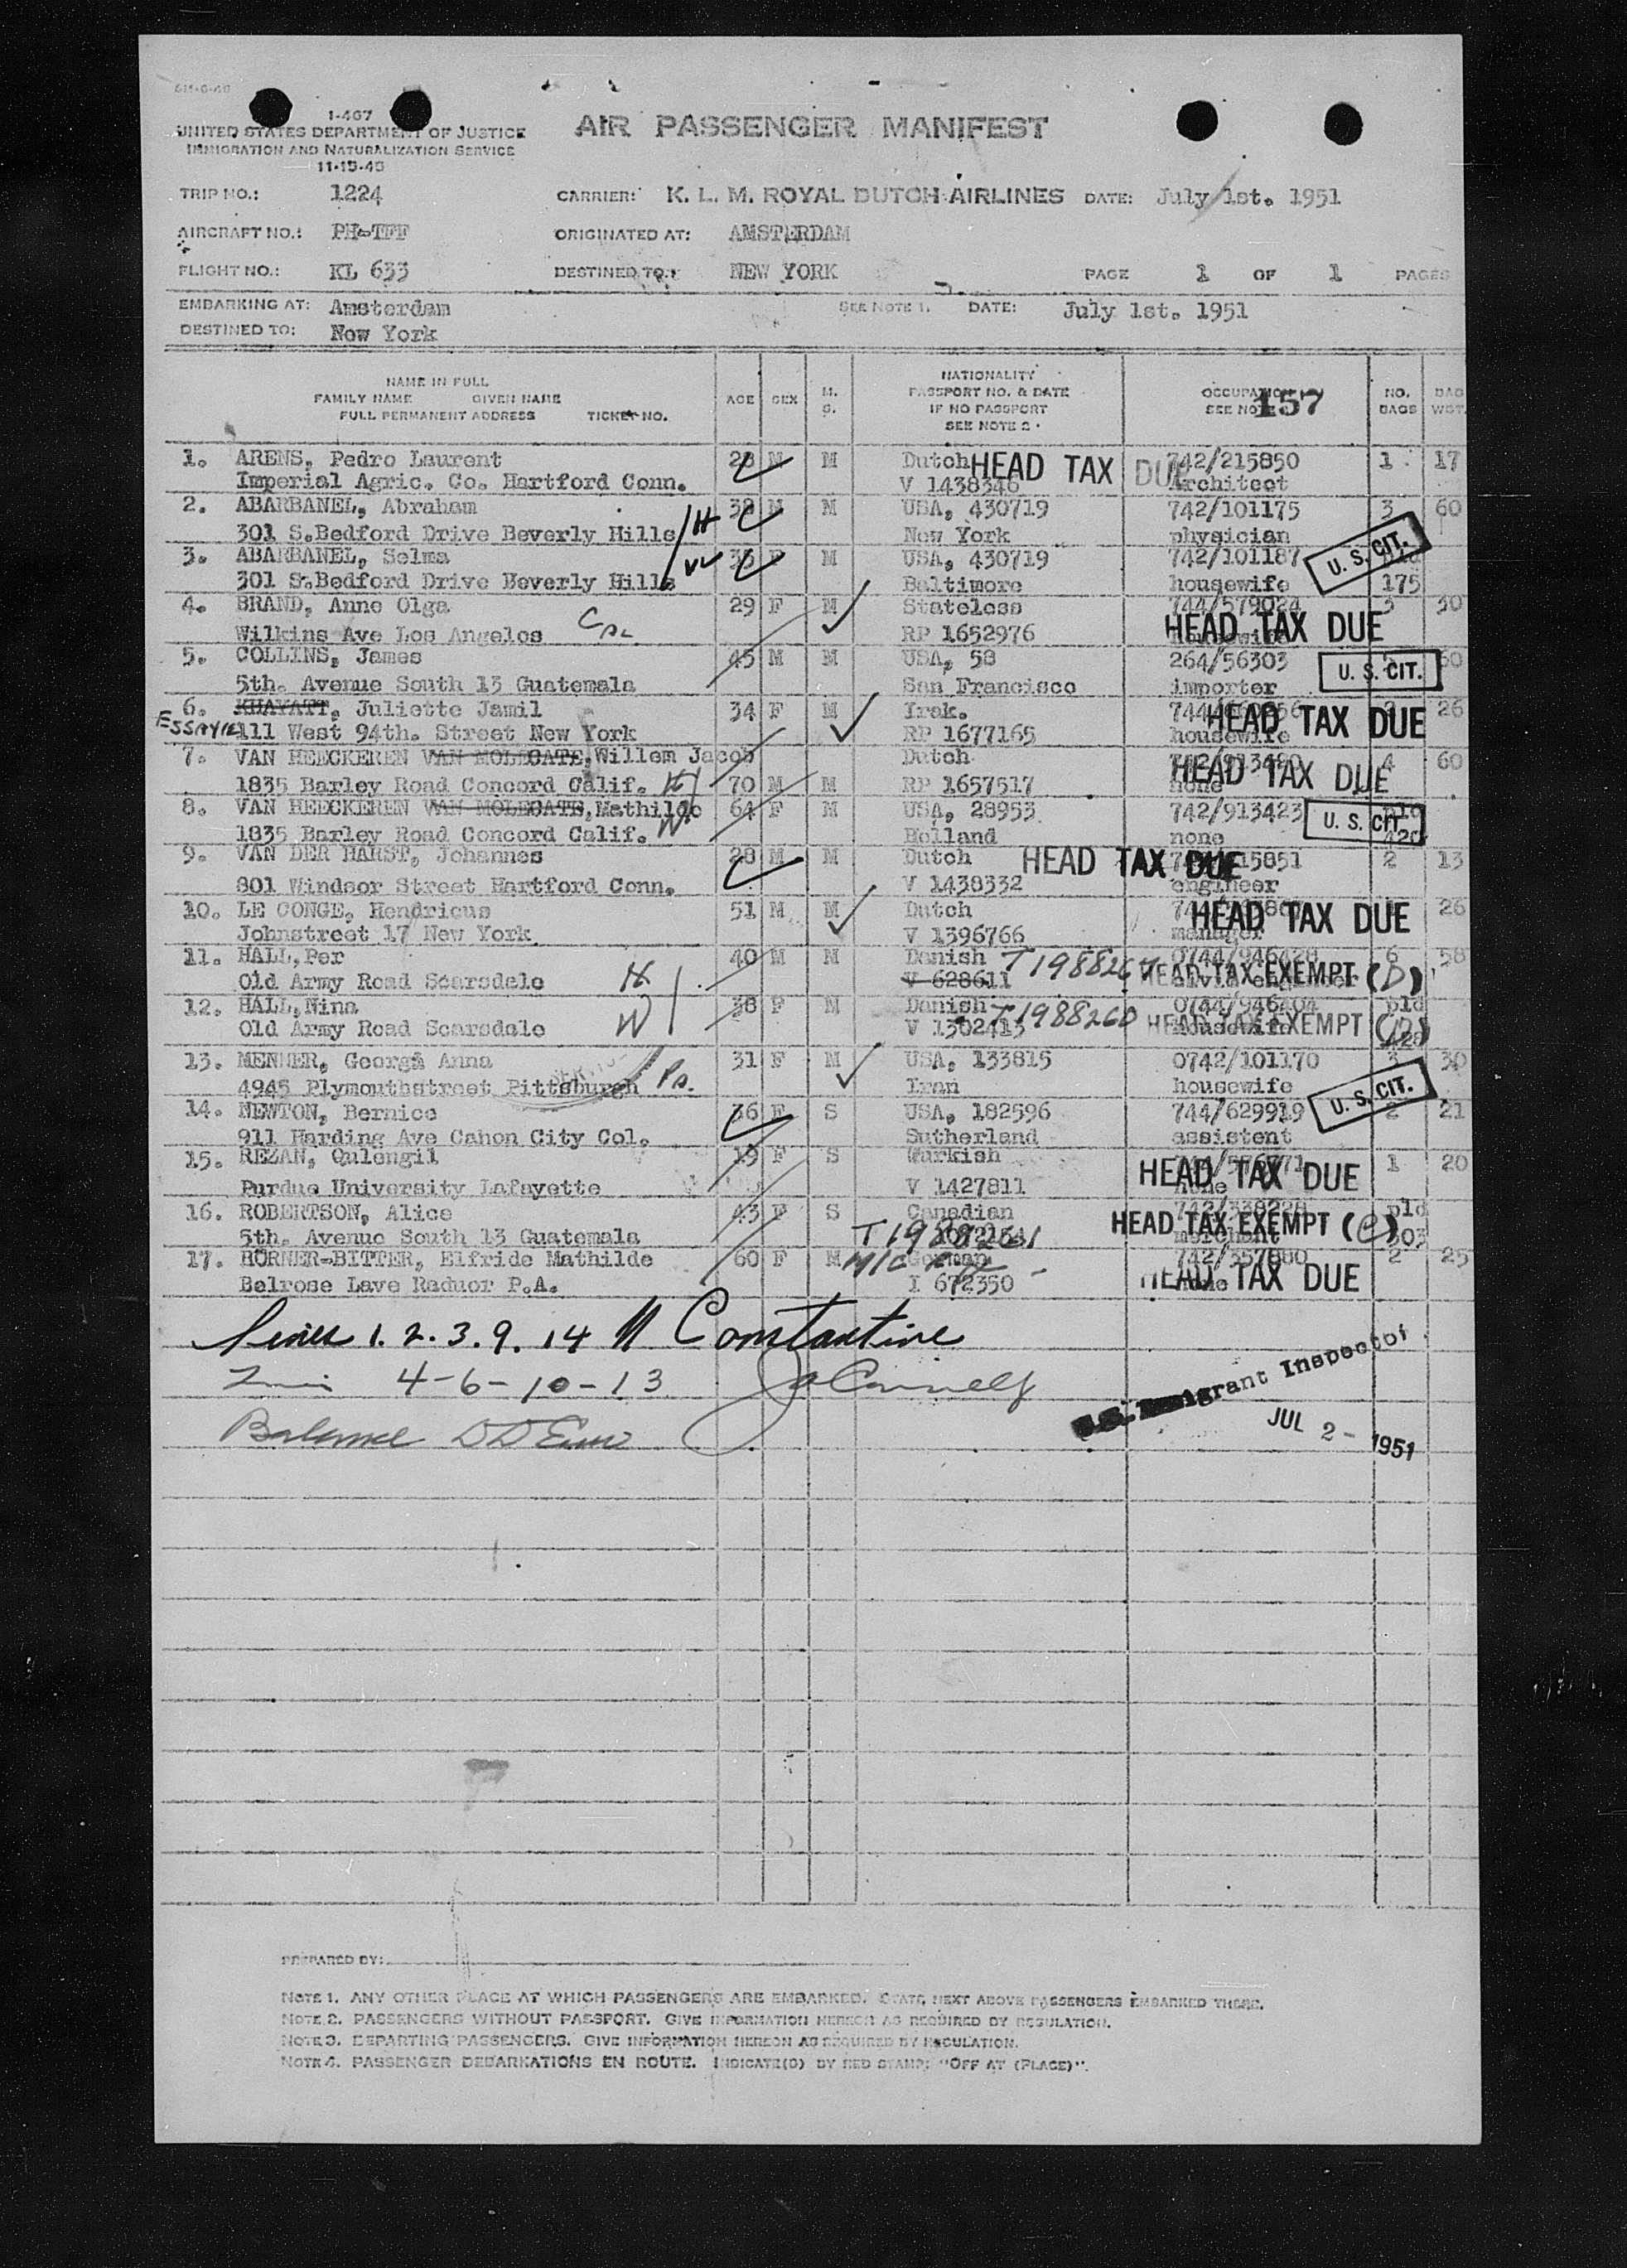 1-467
UNITED STATES DEPARTMENT OF JUSTICE
IMMIGRATION AND NATURALIZATION SERVICE
11-15-45
AIR PASSENGER MANIFEST
TRIP NO.: 1224 CARRIER: K. L. M. ROYAL DUTCH AIRLINES DATE: July 1st. 1951
AIRCRAFT NO.: PH-TFF ORIGINATED AT: AMSTERDAM
FLIGHT NO.: KL 633 DESTINED TO: NEW YORK PAGE 1 OF 1 PAGES
EMBARKING AT: Amsterdam SEE NOTE 1. DATE: July 1st. 1951
DESTINED TO: New York
NAME IN FULL
FAMILY NAME GIVEN NAME
FULL PERMANENT ADDRESS TICKET NO.
AGE SEX M. S.
NATIONALITY
PASSPORT NO. & DATE
IF NO PASSPORT
SEE NOTE 2.
OCCUPATION
SEE NOTE
157
NO. BAGS
BAG WGT.
1. ARENS, Pedro Laurent 28 M M Dutch HEAD TAX DUE 742/215850 1 17
Imperial Agric. Co. Hartford Conn. V 1438346 Architect
2. ABARBANEL, Abraham 38 M M USA, 430719 742/101175 3 60
301 S.Bedford Drive Beverly Hills H New York physician
3. ABARBANEL, Selma F M USA, 430719 742/101187 U. S. CIT.
301 S.Bedford Drive Beverly Hills W Baltimore housewife 175
4. BRAND, Anne Olga 29 F M Stateless 744/579024 3 30
Wilkins Ave Los Angelos RP 1652976 HEAD TAX DUE
5. COLLINS, James 45 M M USA, 58 264/56303 U. S. CIT. 60
5th. Avenue South 13 Guatemala San Francisco importer
6. KHAYATT, Juliette Jamil 34 F M Irak. HEAD TAX DUE 26
ESSAYIE 111 West 94th. Street New York RP 1677165 housewife
7. VAN HEECKEREN VAN MOLECATE, Willem Jacob Dutch HEAD TAX DUE 4 60
1835 Barley Road Concord Calif. H 70 M M RP 1657517 none
8. VAN HEECKEREN VAN MOLECATE, Mathilde 64 F M USA, 28953 742/913423 U. S. CIT. pld
1835 Barley Road Concord Calif. W Holland none 420
9. VAN DER HARST, Johannes 28 M M Dutch HEAD TAX DUE 2 13
801 Windsor Street Hartford Conn. V 1438332 engineer
10. LE CONGE, Hendricus 51 M M Dutch HEAD TAX DUE 26
Johnstreet 17 New York V 1396766 manager
11. HALL, Per 40 M M Danish 0744/946428 6 58
Old Army Road Scarsdale H V 628611 HEAD TAX EXEMPT (D)
12. HALL, Nina 38 F M Danish T1988260 0744/946404 pld
Old Army Road Scarsdale W V 1302413 HEAD TAX EXEMPT (D)
13. MENNER, Georga Anna 31 F M USA, 133815 0742/101170 3 30
4945 Plymouthstreet Pittsburgh Pa. Iran housewife U. S. CIT.
14. NEWTON, Bernice 36 F S USA, 182596 744/629919 2 21
911 Harding Ave Canon City Col. Sutherland assistent
15. REZAN, Qulengil 19 F S Turkish 1 20
Purdue University Lafayette V 1427811 HEAD TAX DUE none
16. ROBERTSON, Alice 43 F S Canadian 742/338228 pld
5th. Avenue South 13 Guatemala HEAD TAX EXEMPT (C) merchant 303
17. BÖRNER-BITTER, Elfride Mathilde 60 F M German 742/357880 2 25
Belrose Lave Raduor P.A. I 672350 HEAD TAX DUE none
Lines 1. 2. 3. 9. 14 Constantine
4-6-10-13
Balance
U.S. Immigrant Inspector
JUL 2 - 1951
PREPARED BY:
NOTE 1. ANY OTHER PLACE AT WHICH PASSENGERS ARE EMBARKED. STATE NEXT ABOVE PASSENGERS EMBARKED THERE.
NOTE 2. PASSENGERS WITHOUT PASSPORT. GIVE INFORMATION HEREON AS REQUIRED BY REGULATION.
NOTE 3. DEPARTING PASSENGERS. GIVE INFORMATION HEREON AS REQUIRED BY REGULATION.
NOTE 4. PASSENGER DEBARKATIONS EN ROUTE. INDICATE(D) BY RED STAMP: "OFF AT (PLACE)".